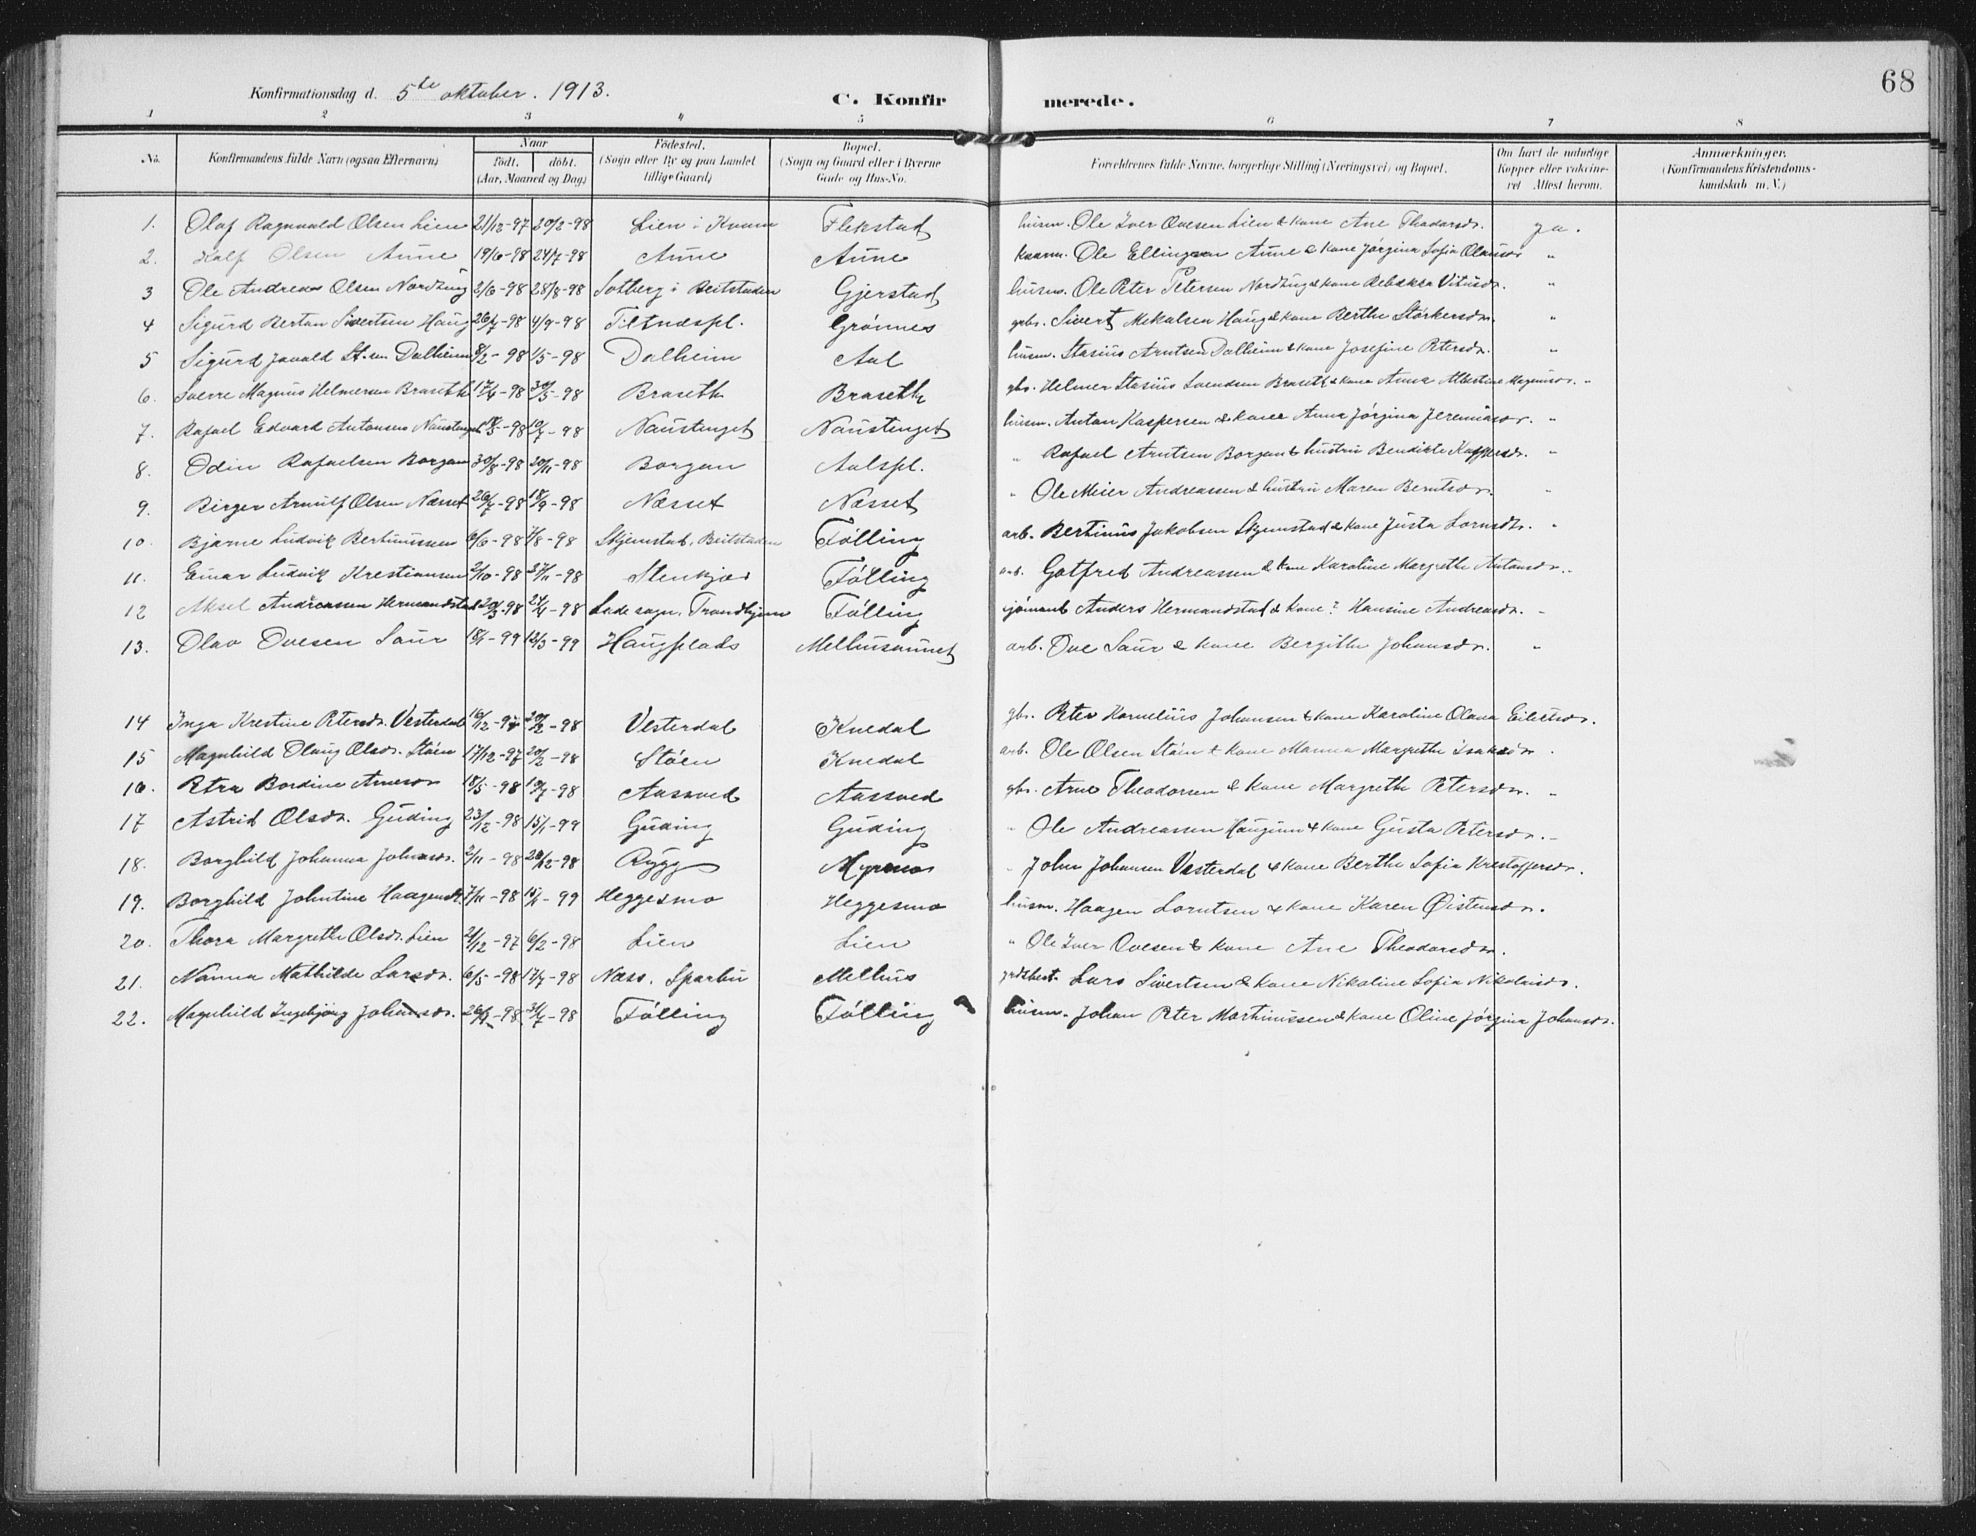 68
Konfirmationsdag d. 5te oktober. 1913. C. Konfirmerede.
1 2 3 4 5 6 7 8
No. Konfirmandens fulde Navn (ogsaa Efternavn) Naar født. døbt. (Aar, Maaned og Dag) Fødested. (Sogn eller By og paa Landet tillige Gaard) Bopæl. (Sogn og Gaard eller i Byerne Gade og Hus-No. Forældrenes fulde Navne, borgerlige Stilling (Næringsvei) og Bopæl. Om havt de naturlige Kopper eller vakcineret Attest herom. Anmærkninger. (Konfirmandens Kristendomskundskab m. V.)
1. Olaf Ragnvald Olsen Lien 21/12-97 20/2-98 Lien i Kvam Flekstad husm. Ole Iver Ovesen Lien & kone Ane Theodorsdr. ja.
2. Half Olsen Aune 19/6-98 24/7-98 Aune Aune Ole Ellingsen Aune & kone Jørgina Sofia Olausdr "
3 Ole Andreas Olsen Nordhug 2/6-98 28/8-98 Solberg i Beitstaden Gjerstad husm. Ole Peter Petersen Nordhug & kone Rebekka Vitusdr. "
4 Sigurd Bertan Sivertsen Haug 26/7-98 4/9-98 Grønnes gbr. Sivert Mikalsen Haug & kone Berthe Størkersdr. "
5 Sigurd Stsen Dalheim 8/2-98 1/5-98 Dalheim Aal husm. Stasius Arntsen Dalheim & kone Josefine Petersdr. "
6. Sverre Magnus Helmersen Braseth 17/4-98 30/5-98 Braseth Braseth gbr. Helmer Stasius Svendsen Braseth & kone Anna Albertine Magnusdr. "
7. Rafael Edvard Antonsen Naustenget 18/5-98 10/7-98 Naustenget Naustenget husm. Anton Kaspersen & kone Anna Jørgina Jeremiasdr. "
8. Odin Rafaelsen Borgan 30/8-98 20/11-98 Borgan Aalspl. " Rafael Arntsen Borgan & hustru Bendikte Kaspersdr. "
9. Birger Arnulf Olsen Næsset 26/7-98 18/9-98 Næsset Næsset " Ole Meier Andreassen & hustru Maren Berntsdr. "
10. Bjarne Ludvik Bertinussen 6/6-98 7/8-98 Skjemstad, Beitstaden Følling arb. Bertinus Jakobsen Skjemstad & kone Justa Lorntsdr. "
11. Einar Ludvik Kristiansen 2/10-98 27/11-98 Stenkjær Følling arb. Gotfred Andreassen & kone Karoline Margrethe Antonsdr. "
12 Aksel Andreassen Hermandstad 20/3-98 24/4-98 Lade sogn, Trondhjem Følling Anders Hermandstad & kone? Hansine Andreasdr. "
13. Olav Ovesen Saur 18/1-99 12/3-99 Haugplads Melhusaunet arb. Ove Saur & kone Bergitte Johansdr. "
14 Inga Kristine Petersdr. Vesterdal 16/12-97 20/2-98 Vesterdal Knedal gbr. Peter Kornelius Johansen & kone Karoline Olana Eilertsdr.
15 Magnhild Olaug Olsdr. Støen 17/12-97 20/2-98 Støen Knedal arb. Ole Olsen Støen & kone Manna Margrethe Isaksdr.
16. Petra Bordine Arnesdr 18/5-98 10/7-98 Aassved Aassved gbr. Arne Theodorsen & kone Margrethe Petersdr. "
17 Astrid Olsdr. Guding 23/12-98 15/1-99 Guding Guding " Ole Andreassen Haugum & kone Gusta Petersdr. "
18. Borghild Johanna Johnsdr. 2/11-98 26/12-98 Rygg Myrmo " John Johansen Vesterdal & kone Berthe Sofia Kristoffersdr.
19. Borghild Johntine Haagensdr. 7/11-98 15/1-99 Heggesmo Heggesmo husm. Haagen Lorntsen & kone Karen Øistensdr.
20. Thora Margrethe Olsdr. Lien 21/12-97 6/2-98 Lien Lien " Ole Iver Ovesen & kone Ane Theodorsdr.
21. Nanna Mathilde Larsdr. 6/5-98 17/7-98 Næss, Sparbu Melhus grdsbest. Lars Sivertsen & kone Nikoline Sofia Nikolaisdr.
22. Magnhild Ingebjørg Johansdr. 26/4-98 31/7-98 Følling Følling husm. Johan Peter Martinussen & kone Oline Jørgina Johansdr.